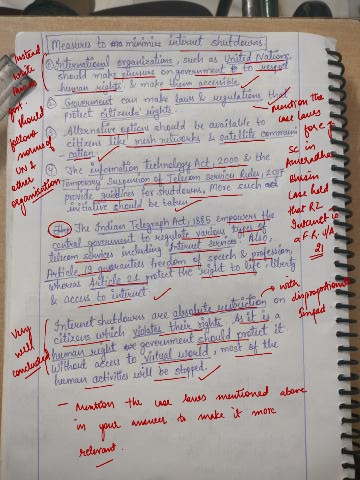 Measures to minimize internet shutdowns
① International organizations, such as United Nations
should make pressure on government to respect
human rights & make them accessible.
② Government can make laws & regulations that
protect citizens' rights.
③ Alternative options should be available to
citizens like mesh networks & satellite communi
cation
④ The information technology Act, 2000 & the
Temporary Suspension of Telecom Service Rules, 2017
provide guidelines for shutdowns, More such
initiative should be taken
The Indian Telegraph Act, 1885 empowers the
central government to regulate various types of
telecom services including Internet services. Also,
Article 19 guaranties freedom of speech & profession,
whereas Article 21 protect the right to life, liberty
& access to internet
Internet shutdowns are absolute restriction on
citizens which violates their rights. As it is a
human right government should protect it
Without access to virtual world, most of the
human activities will be stopped.
Instead
write
this
govt. should
follow
norms of
UN &
other
organisation
mention the
case laws
SC in
Anuradha
Bhasin
Case held
that Rt
Internet is
a F.R. u/A
21
with
disproportionate
impact
Very
well
concluded
- Mention the case laws mentioned above
in your answer to make it more
relevant.